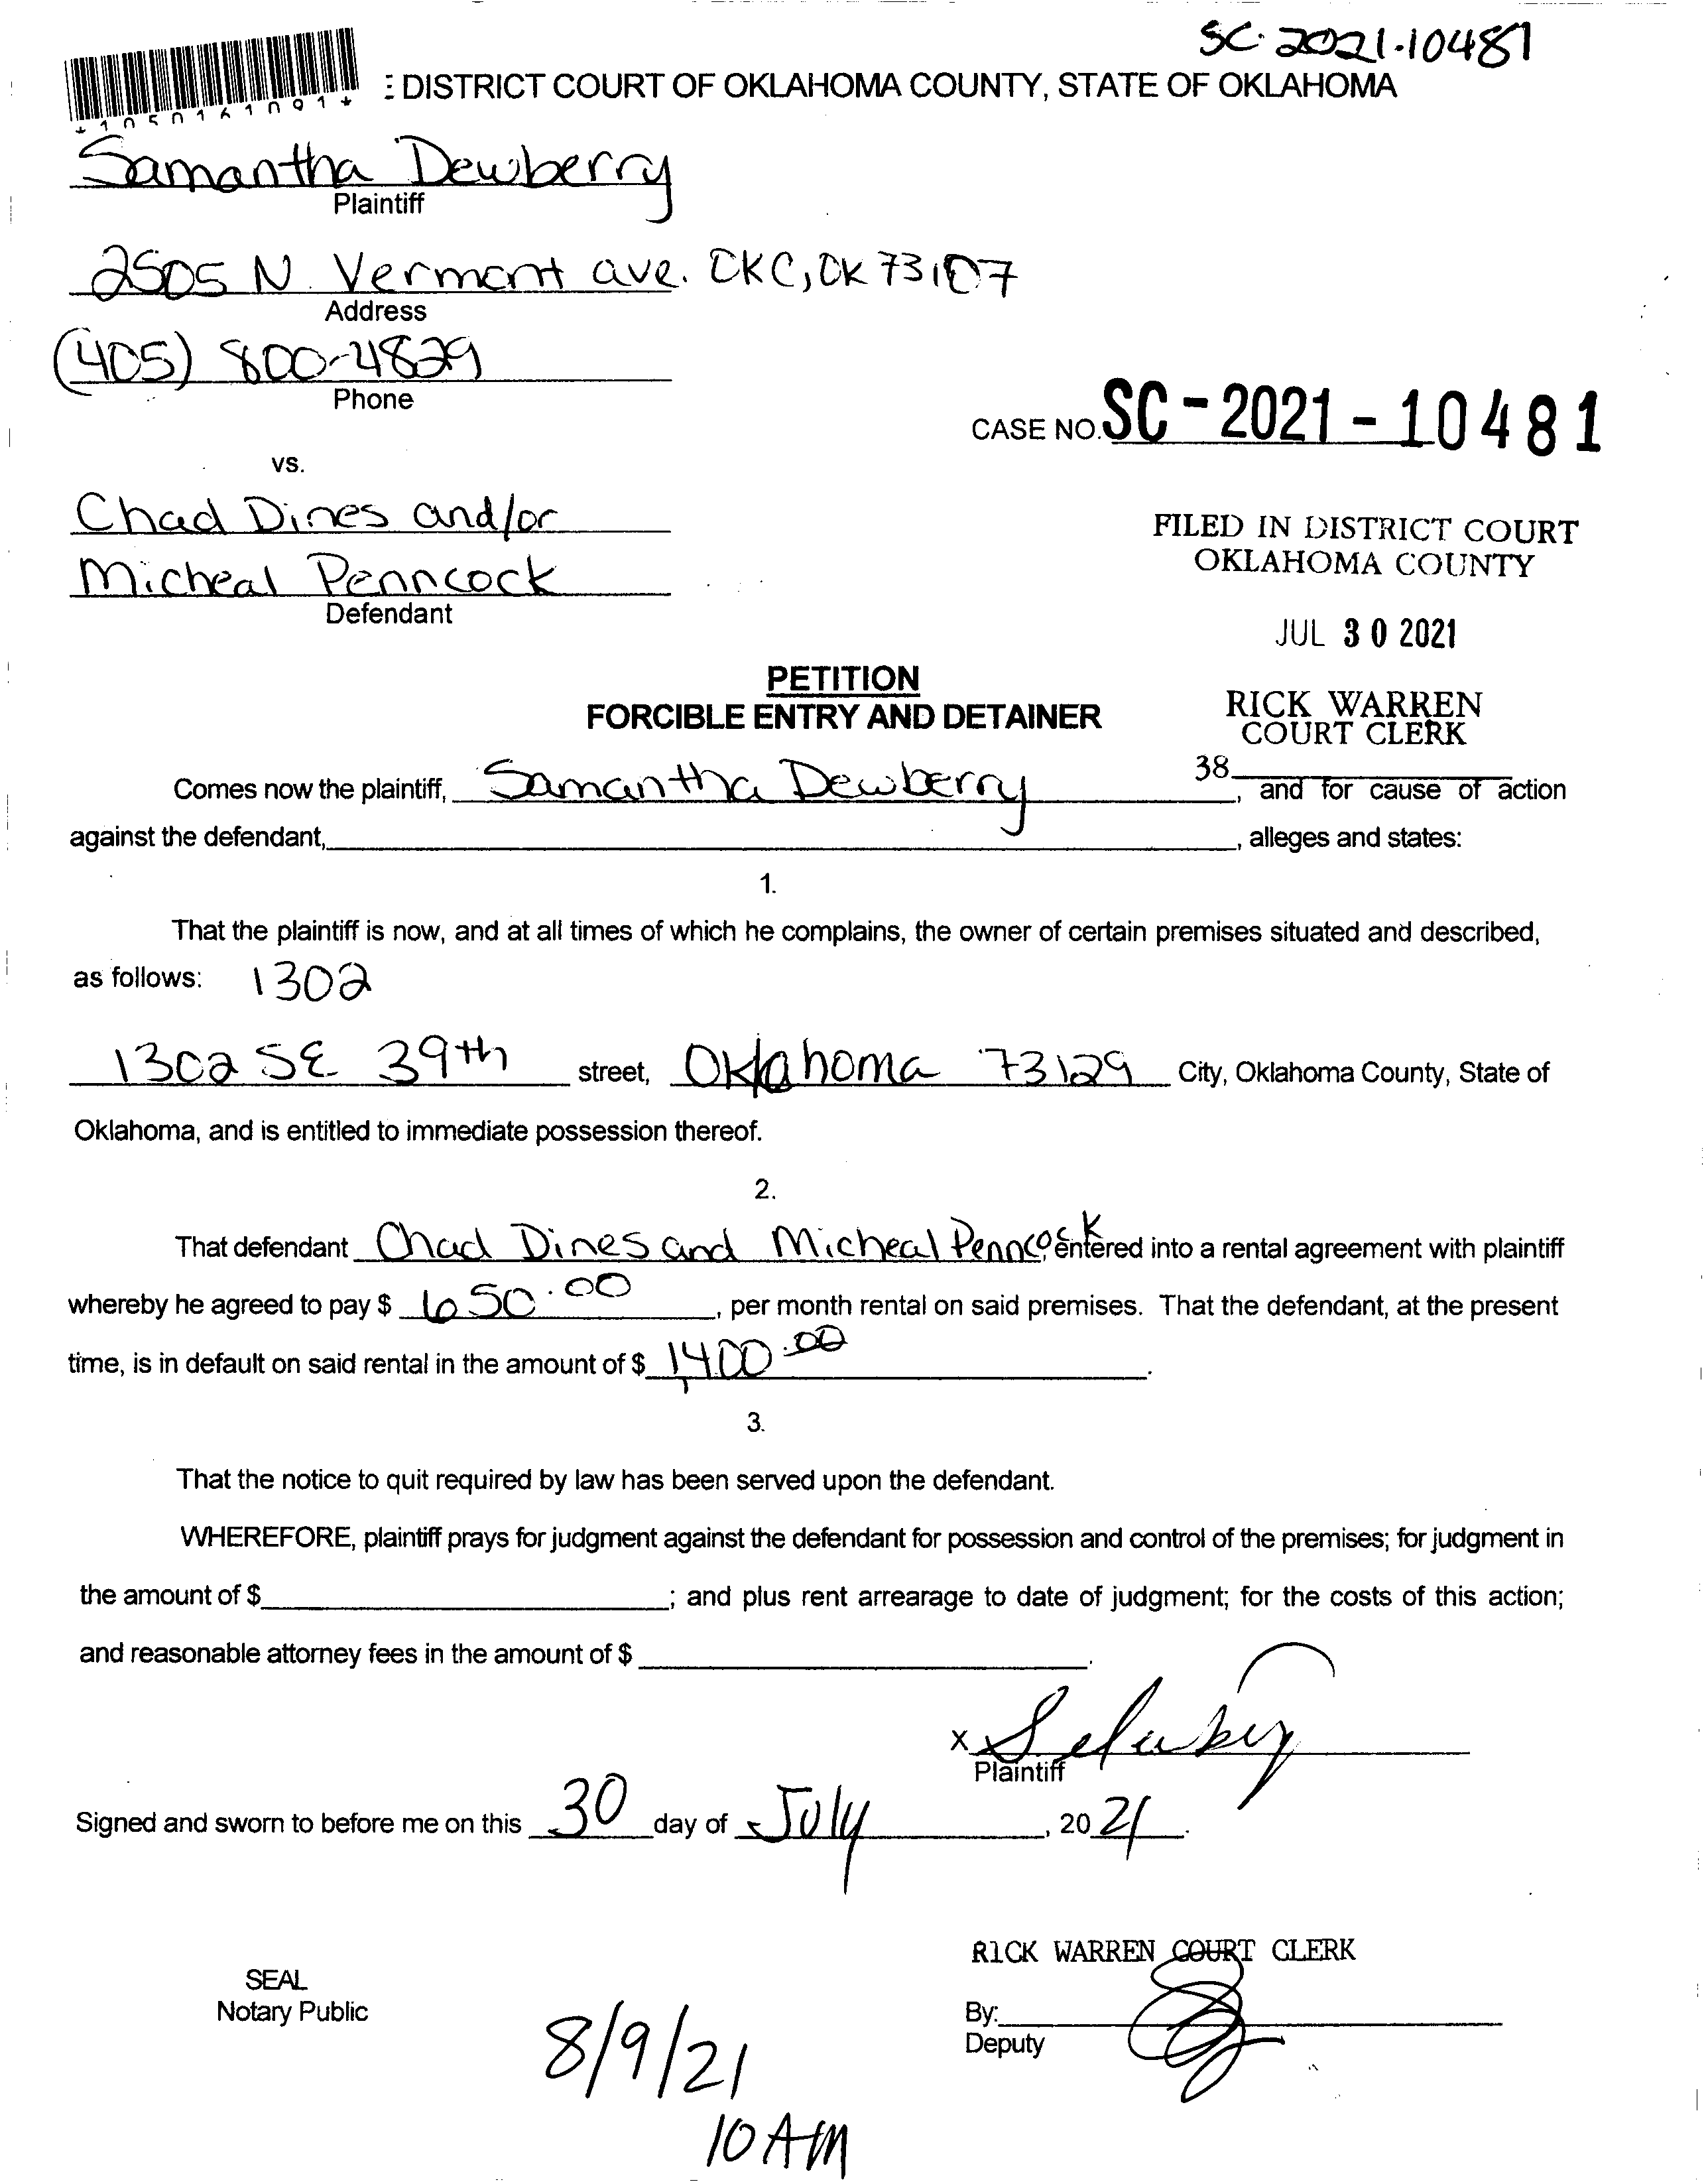 SC-2021-10481
E DISTRICT COURT OF OKLAHOMA COUNTY, STATE OF OKLAHOMA
*1050161091*
Samantha Dewberry
Plaintiff
2505 N. Vermont ave. OKC, OK 73107
Address
(405) 800-4829
Phone
CASE NO. SC-2021-10481
vs.
Chad Dines and/or
Micheal Penncock
Defendant
FILED IN DISTRICT COURT
OKLAHOMA COUNTY
JUL 30 2021
RICK WARREN
COURT CLERK
38
PETITION
FORCIBLE ENTRY AND DETAINER
Comes now the plaintiff, Samantha Dewberry, and for cause of action
against the defendant, , alleges and states:
1.
That the plaintiff is now, and at all times of which he complains, the owner of certain premises situated and described,
as follows: 1302
1302 SE 39th street, Oklahoma 73129 City, Oklahoma County, State of
Oklahoma, and is entitled to immediate possession thereof.
2.
That defendant Chad Dines and Micheal Penncock, entered into a rental agreement with plaintiff
whereby he agreed to pay $ 650.00, per month rental on said premises. That the defendant, at the present
time, is in default on said rental in the amount of $ 1400.00.
3.
That the notice to quit required by law has been served upon the defendant.
WHEREFORE, plaintiff prays for judgment against the defendant for possession and control of the premises; for judgment in
the amount of $ ; and plus rent arrearage to date of judgment; for the costs of this action;
and reasonable attorney fees in the amount of $ .
x
Plaintiff
Signed and sworn to before me on this 30 day of July, 2021.
RICK WARREN COURT CLERK
SEAL
Notary Public
By:
Deputy
8/9/21
10 AM